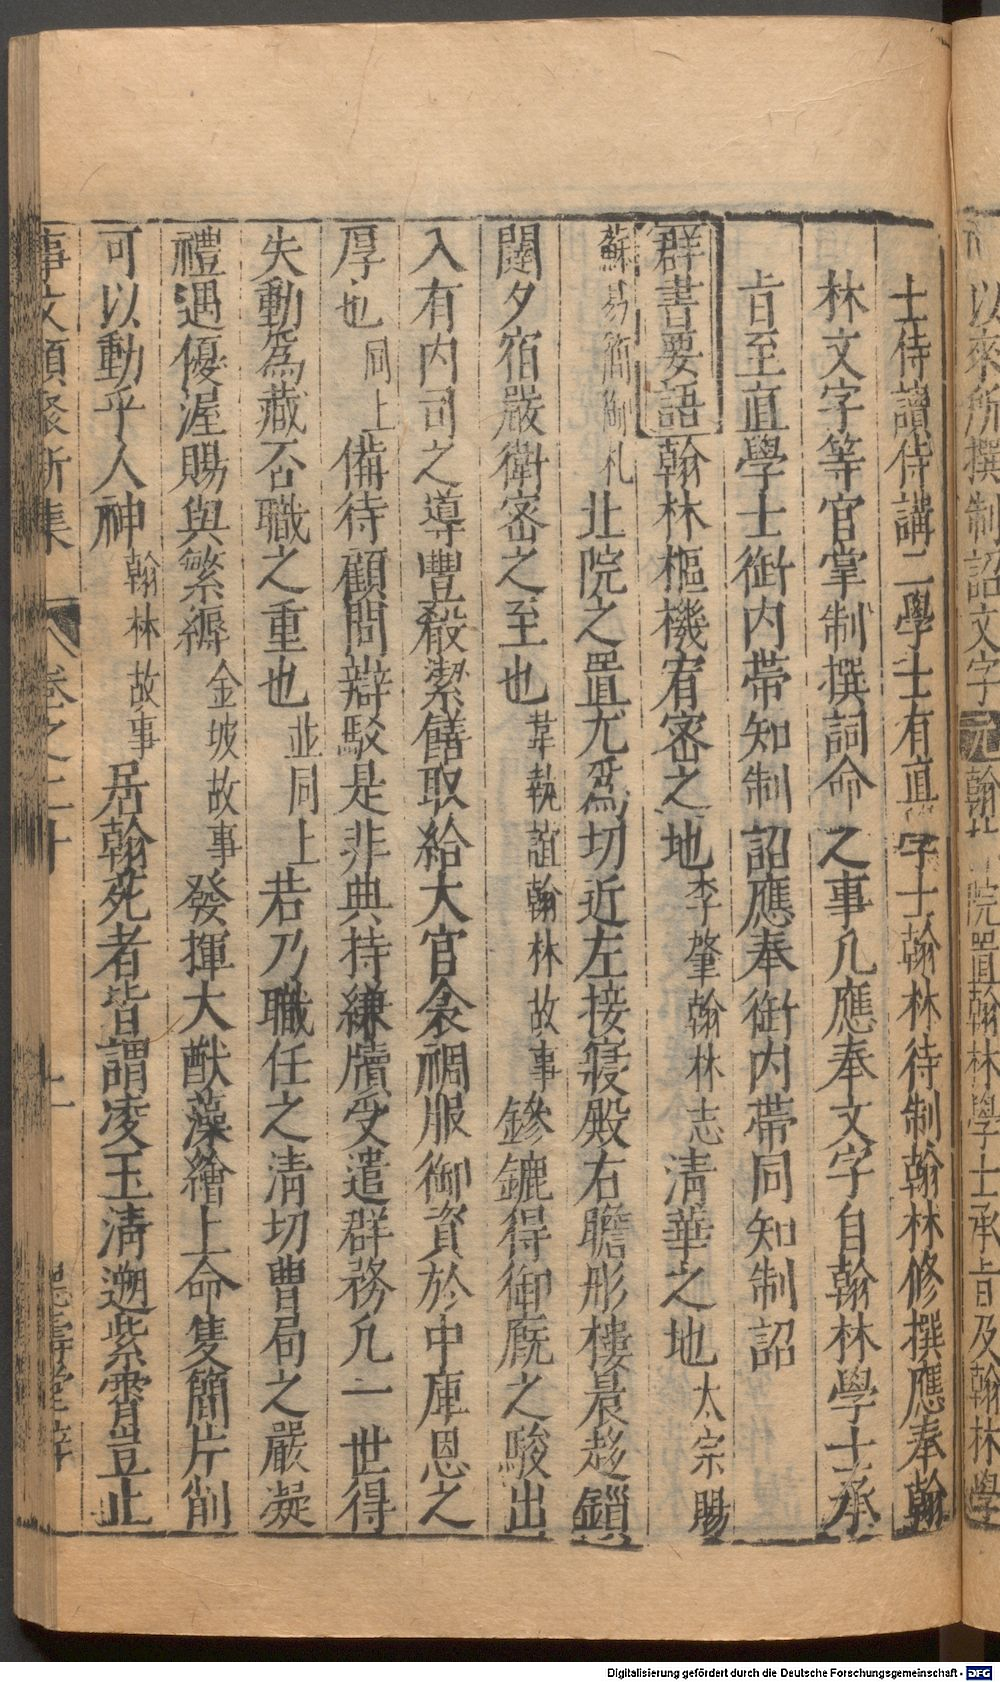 以來所撰制詔文字元翰林院置翰林學士承旨及翰林學
士侍讀侍講二學士有直學士翰林待制翰林修撰應奉翰
林文字等官掌制撰詞命之事凡應奉文字自翰林學士承
旨至直學士銜内帶知制詔應奉銜内帶同知制詔
群書要語翰林樞機宥密之地李肇翰林志清華之地太宗賜
蘇易簡御札北院之置尤爲切近左接寢殿右瞻彤樓晨趍鎻
闥夕宿嚴衛密之至也韋執誼翰林故事鏒鑣得御廐之駿出
入有内司之導豐殽潔饍取給大官衾裯服御資於中庫恩之
厚也同上備待顧問辯駁是非典持縑牘受遣群務凡一世得
失動爲藏否職之重也並同上若乃職任之清切曹局之嚴凝
禮遇優渥賜與繁縟金坡故事發揮大猷藻繪上命隻簡片削
可以動乎人神翰林故事居翰死者皆謂凌玉清遡紫霄豈止
事文類聚新集 卷之二十 十一
Digitalisierung gefördert durch die Deutsche Forschungsgemeinschaft - DFG